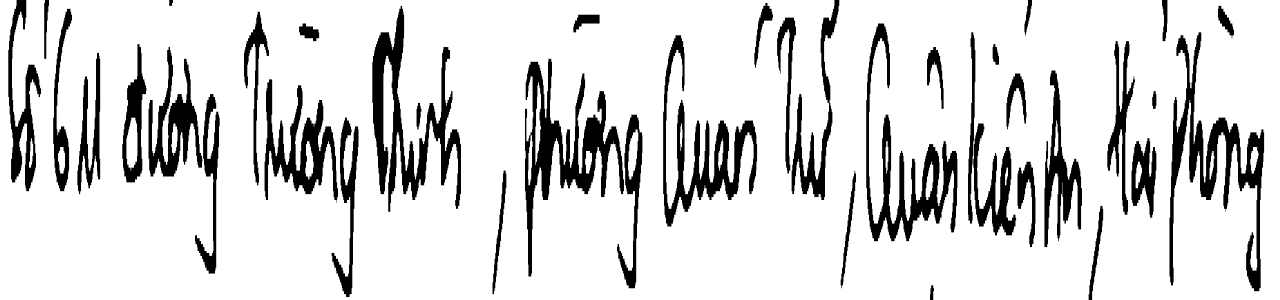 Số 64 đường Trường Chinh, phường Quán Trữ, Quận Kiến An, Hải Phòng